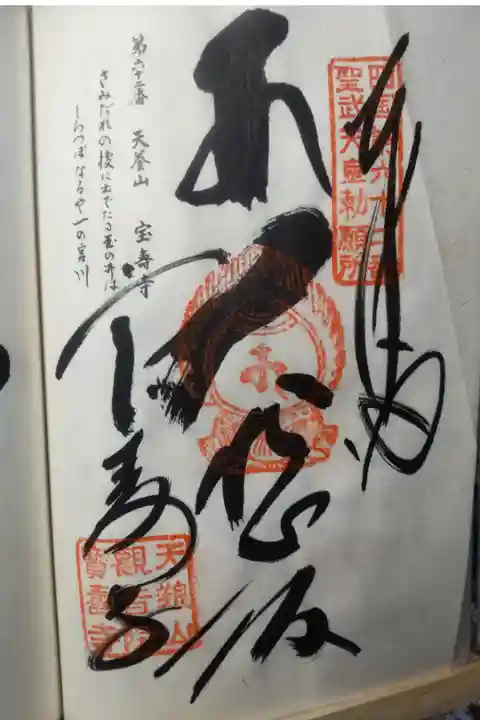 四国第六十二番
聖武天皇勅願所
奉納
宝寿寺
第六十二番 天養山 宝寿寺
さみだれの後に出でたる玉の井は
しらつぼなるや一の宮川
天養山
觀音院
寶壽寺